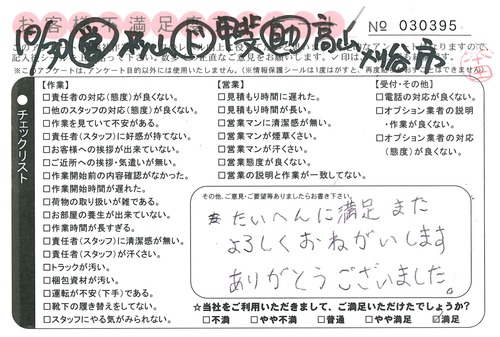 お客様不満足度
10/30 営 杉山 ド 助 高山 刈谷市
№ 030395
記入後
※このアンケートは、アンケート目的以外には使用いたしません。(※情報保護シールは1度はがすと、再度貼
チェックリスト
【作業】
□責任者の対応(態度)が良くない。
□他のスタッフの対応(態度)が良くない。
□作業を見ていて不安がある。
□責任者(スタッフ)に好感が持てない。
□お客様への挨拶が出来ていない。
□ご近所への挨拶・気遣いが無い。
□作業開始前の内容確認がなかった。
□作業開始時間が遅れた。
□荷物の取り扱いが雑である。
□お部屋の養生が出来ていない。
□作業時間が長すぎる。
□責任者(スタッフ)に清潔感が無い。
□責任者(スタッフ)が汗くさい。
□トラックが汚い。
□梱包資材が汚い。
□運転が不安(下手)である。
□靴下の履き替えをしてない。
□スタッフにやる気がみられない。
【営業】
□見積もり時間に遅れた。
□見積もり時間が長い。
□営業マンに清潔感が無い。
□営業マンが煙草くさい。
□営業マンが汗くさい。
□営業態度が良くない。
□営業の説明と作業が一致してない。
【受付・その他】
□電話の対応が良くない。
□オプション業者の説明
・作業が良くない。
□オプション業者の対応
(態度)が良くない。
その他、ご意見・ご要望等ありましたらお書き下さい。
たいへんに満足 また
よろしくおねがいします
ありがとうございました。
★当社をご利用いただきまして、ご満足いただけたでしょうか?
□不満 □やや不満 □普通 □やや満足 ☑満足